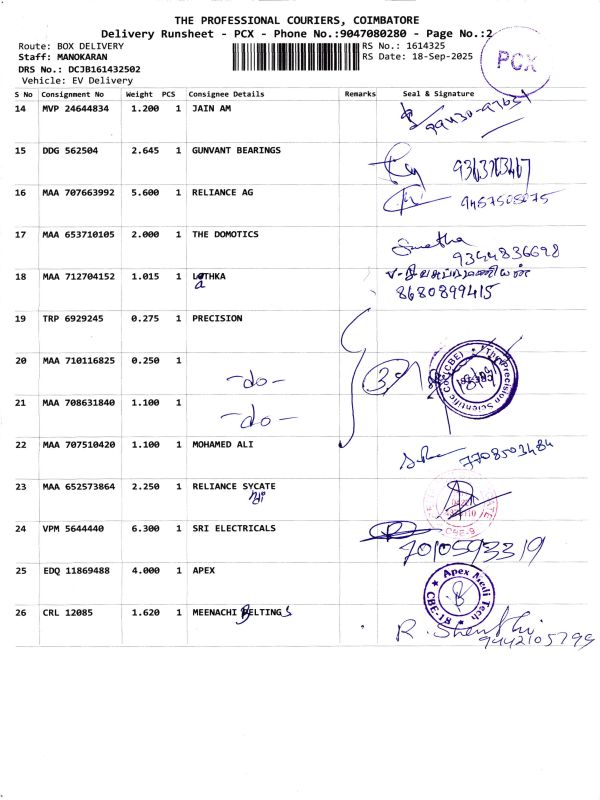 THE PROFESSIONAL COURIERS, COIMBATORE
Delivery Runsheet - PCX - Phone No.:9047080280 - Page No.:2
Route: BOX DELIVERY
RS No.: 1614325
Staff: MANOKARAN
RS Date: 18-Sep-2025
DRS No.: DCJB161432502
Vehicle: EV Delivery
PCX
S No Consignment No Weight PCS Consignee Details Remarks Seal & Signature
14 MVP 24644834 1.200 1 JAIN AM
15 DDG 562504 2.645 1 GUNVANT BEARINGS
9363763467
16 MAA 707663992 5.600 1 RELIANCE AG
17 MAA 653710105 2.000 1 THE DOMOTICS
9344836698
18 MAA 712704152 1.015 1 LATHKA
a
8680899415
19 TRP 6929245 0.275 1 PRECISION
20 MAA 710116825 0.250 1 -do- 3
The Precision Scientific Co. (CBE)
21 MAA 708631840 1.100 1 -do-
22 MAA 707510420 1.100 1 MOHAMED ALI
7708503484
23 MAA 652573864 2.250 1 RELIANCE SYCATE
CBE-9
24 VPM 5644440 6.300 1 SRI ELECTRICALS
7010593319
25 EDQ 11869488 4.000 1 APEX
Apex Medi Tech
CBE-18
26 CRL 12085 1.620 1 MEENACHI BELTINGS
9442105799